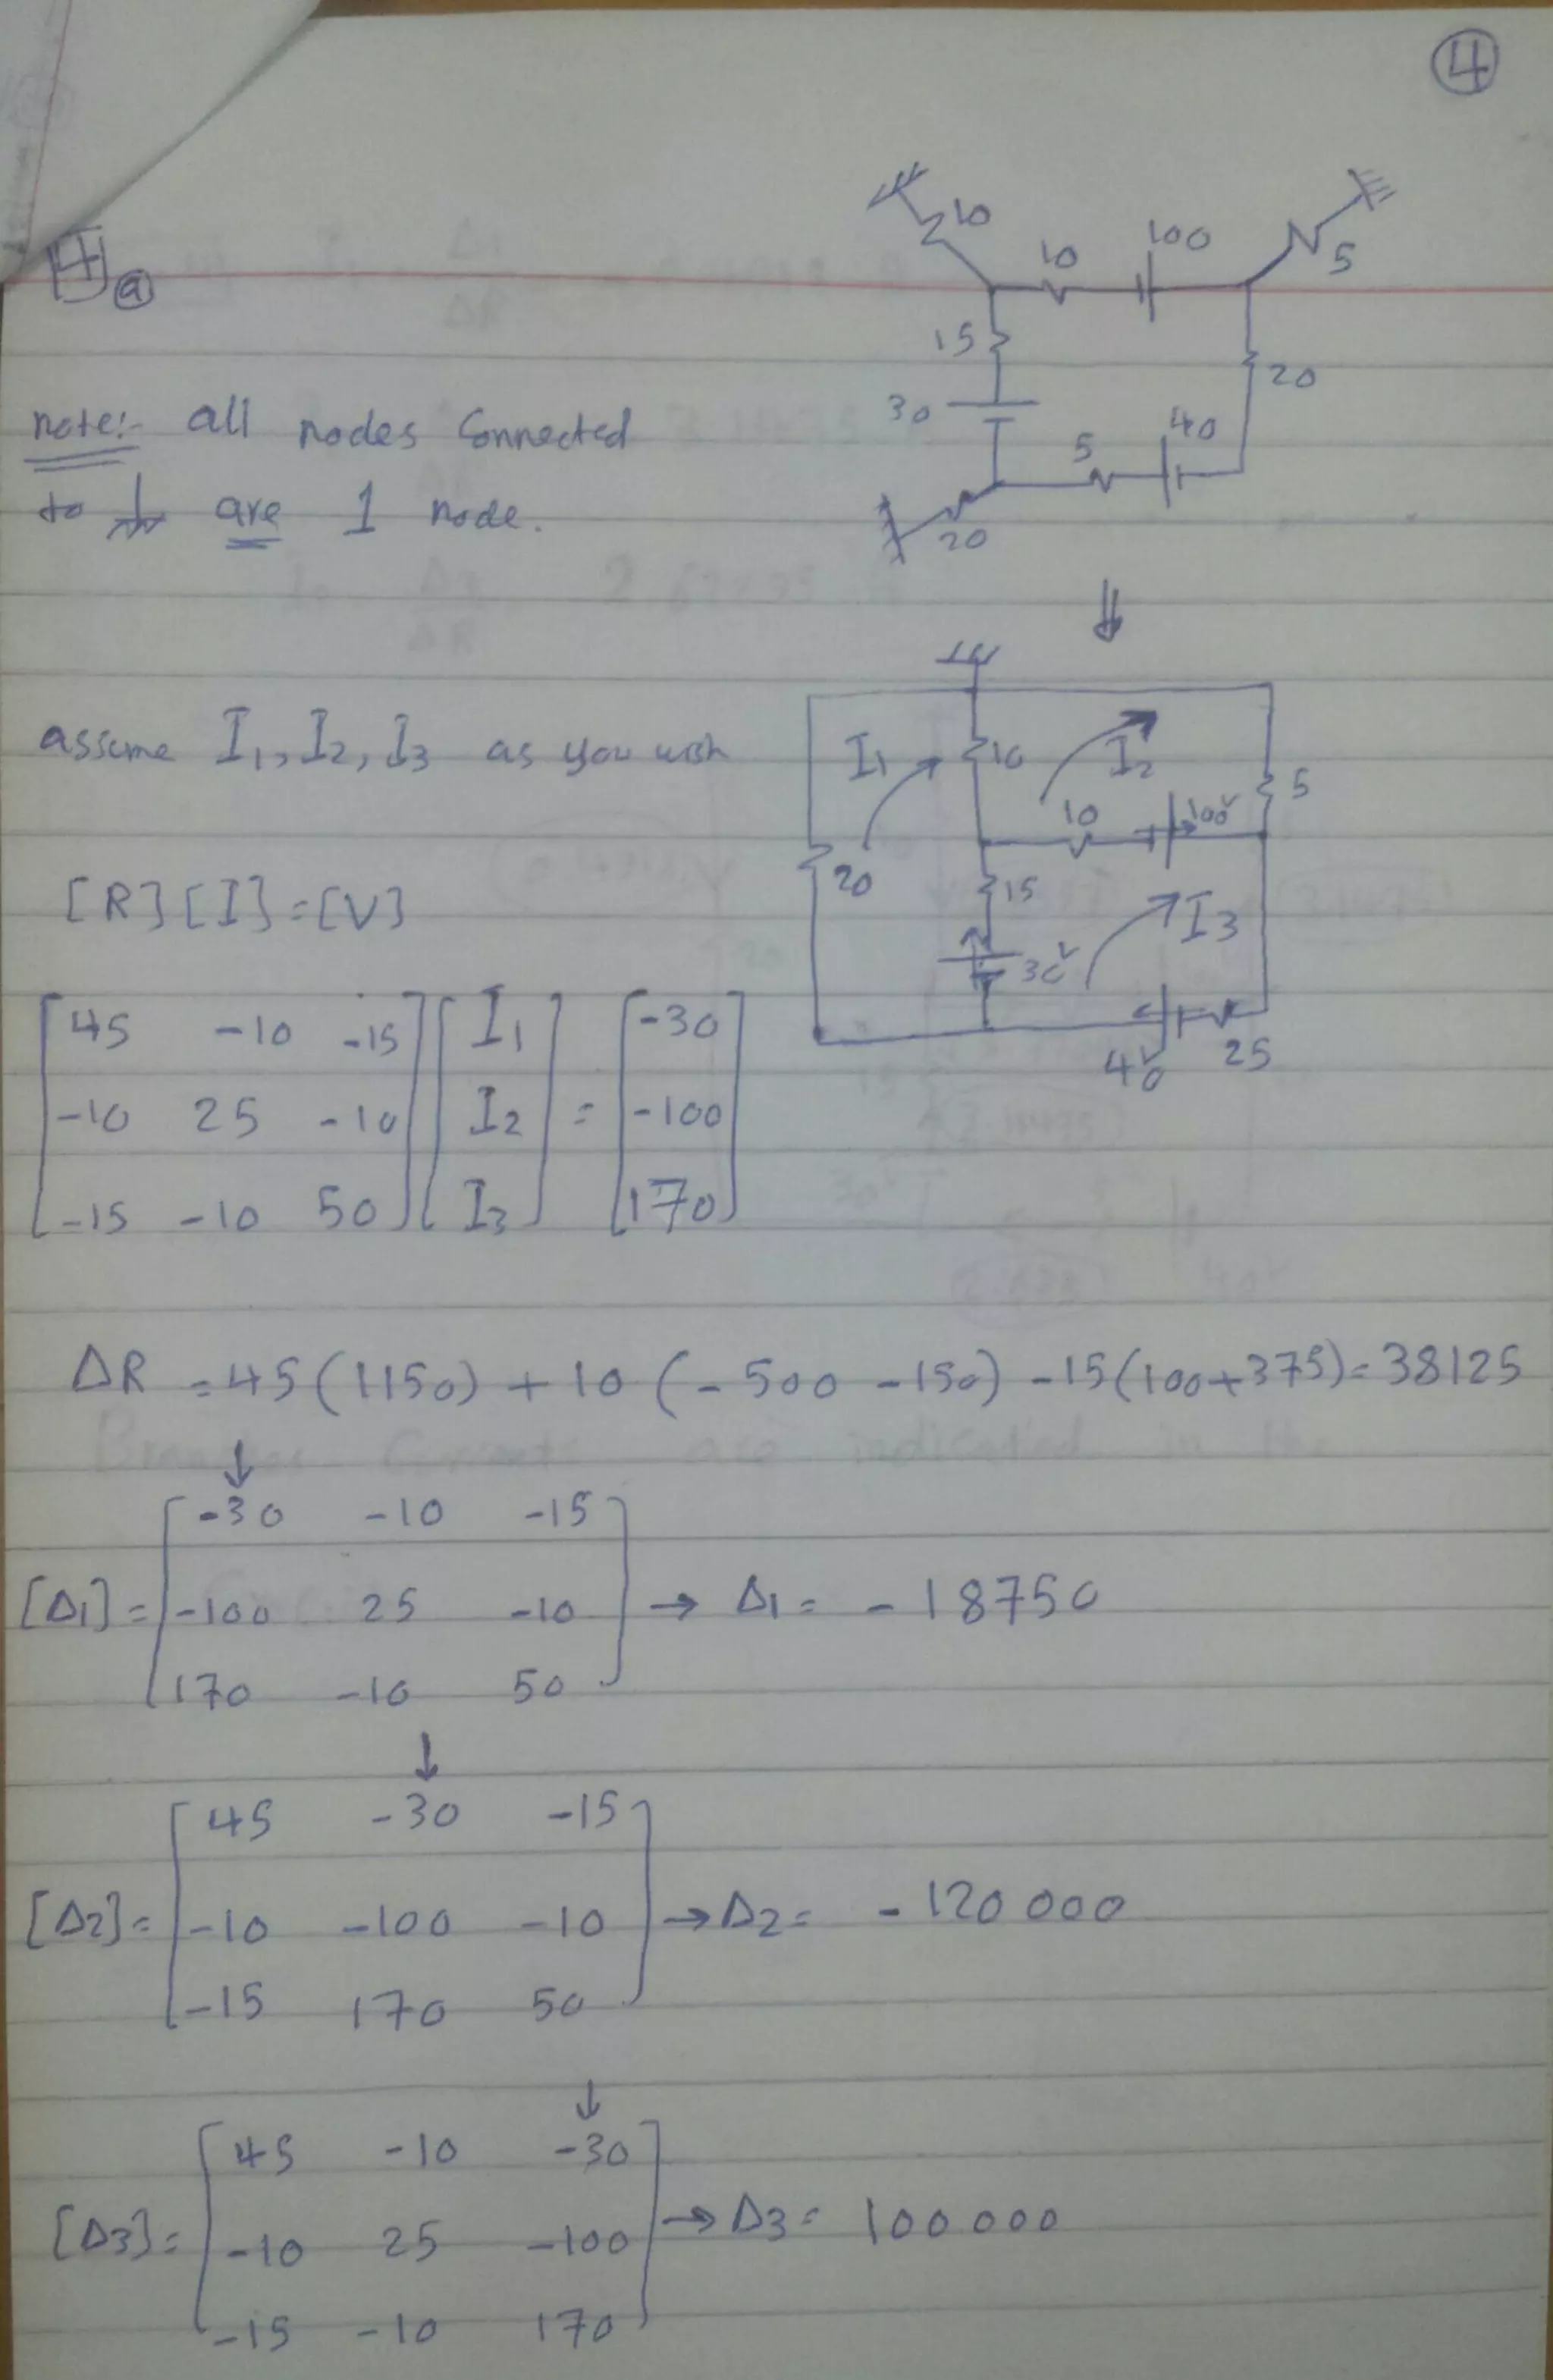 4
4 a
10
10
100
5
15
30
20
5
40
20
note:- all nodes Connected
to ⏚ are 1 node.
⇓
assume I₁, I₂, I₃ as you wish
I₁
10
I₂
5
10
100v
20
15
I₃
30v
40v
25
[R][I]=[V]
[45 -10 -15] [I₁] = [-30]
[-10 25 -10] [I₂] = [-100]
[-15 -10 50] [I₃] = [170]
ΔR = 45(1150) + 10(-500 -150) -15(100+375) = 38125
↓
[Δ1] = [-30 -10 -15
-100 25 -10
170 -10 50] → Δ1 = -18750
↓
[Δ2] = [45 -30 -15
-10 -100 -10
-15 170 50] → Δ2 = -120 000
↓
[Δ3] = [45 -10 -30
-10 25 -100
-15 -10 170] → Δ3 = 100 000